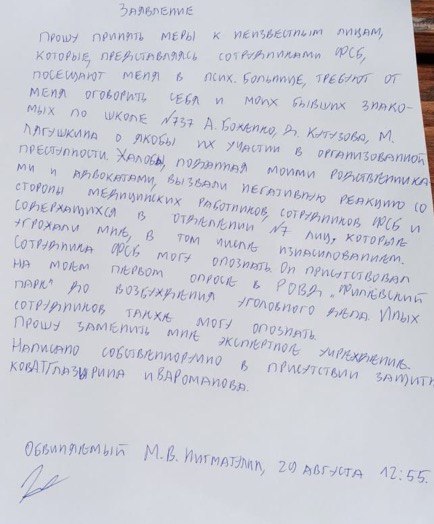 Заявление
Прошу принять меры к неизвестным лицам,
которые, представляясь сотрудниками ФСБ,
посещают меня в псих. больнице, требуют от
меня оговорить себя и моих бывших знако-
мых по школе №737 А. Боженко, Вл. Кутузова, М.
Лягушкина о якобы их участии в организованной
преступности. Жалобы, поданная моими родственника-
ми и адвокатами, вызвали негативную реакцию со
стороны медицинских работников, сотрудников ФСБ и
содержащихся в отделении №7 лиц, которые
угрожали мне, в том числе изнасилованием.
Сотрудника ФСБ могу опознать. Он присутствовал
на моем первом опросе в РОВД "Филёвский
парк" до возбуждения уголовного дела. Иных
сотрудников также могу опознать.
Прошу заменить мне экспертное учреждение.
Написано собственноручно в присутствии защитни
ков Глазырина и Романова.
Обвиняемый М.В. Нигматулин, 29 августа 12:55.